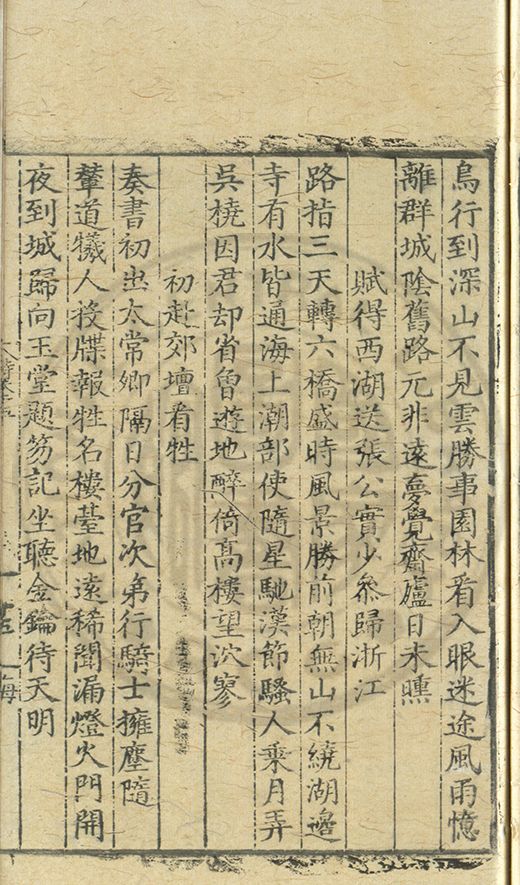 鳥行到深山不見雲勝事園林看入眼迷途風雨憶
離群城陰舊路元非遠夢覺齋廬日未曛
賦得西湖送張公實少參歸浙江
路指三天轉六橋盛時風景勝前朝無山不繞湖邊
寺有水皆通海上潮部使隨星馳漢節騷人乘月弄
吳橈因君却省曾遊地醉倚高樓望泬寥
初赴郊壇看牲
奏書初出太常卿隔日分官次弟行騎士擁塵隨
輦道犧人投牒報牲名樓臺地遠稀聞漏燈火門開
夜到城歸向玉堂題笏記坐聽金鑰待天明